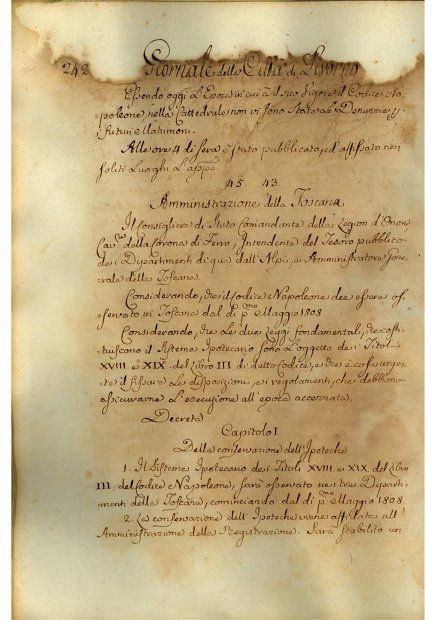 242 Giornale della Città di Livorno
Essendo oggi l'Epoca in cui à il suo Vigore il Codice Na-
poleone nella Cattedrale non vi sono state le Denunzie
futuri Matrimoni.
Alle ore 4 di sera è stato pubblicato, ed affissato nei
soliti Luoghi l'app.e
45. 43.
Amministrazione della Toscana,
Il Consigliere di Stato Comandante della Legion d'Onore
Cav.e della Corona di Ferro, Intendente del Tesoro pubblico
dei Dipartimenti di qua dall'Alpi, e Amministratore Gene-
rale della Toscana.
Considerando, che il Codice Napoleone dee essere of-
servato in Toscana dal dì p.mo Maggio 1808
Considerando, che le due Leggi fondamentali, che costi-
tuiscono il Sistema Ipotecario sono l'oggetto dei Titoli
XVIII e XIX del Libro III di detto Codice, e che è cosa urgen-
te il fissare le disposizioni, e i regolamenti, che debbono
assicurarne l'esecuzione all'epoca accennata.
Decreta
Capitolo I
Della conservazione dell'Ipoteche
1. Il Sistema Ipotecario dei Titoli XVIII e XIX del Libro
III. del Codice Napoleone, sarà osservato nei tre Diparti-
menti della Toscana, cominciando dal dì p.mo Maggio 1808.
2. La conservazione dell'Ipoteche viene affidata all'
Amministrazione della Registrazione. Sarà stabilito un